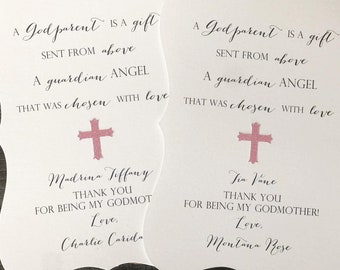 A Godparent IS A gift
SENT FROM above
A guardian ANGEL
THAT WAS chosen WITH love
Madrina Tiffany
THANK YOU
FOR BEING MY GODMOT
Love,
Charlie Carida
A Godparent IS A gift
SENT FROM above
A guardian ANGEL
THAT WAS chosen WITH love
Tia Vane
THANK YOU
FOR BEING MY GODMOTHER!
Love,
Montana Rose